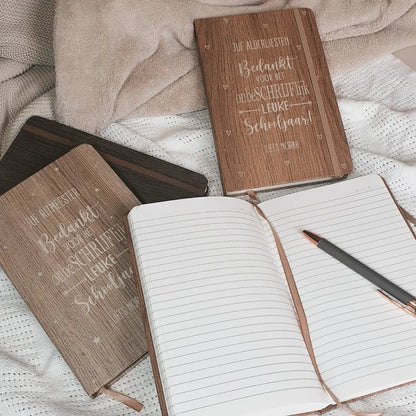 JUF ALLERLIEFSTEN
Bedankt
VOOR HET
onbeSCHRIJFlijk
LEUKE
Schooljaar!
LIEFS NORAH
JUF RITMEESTER
Bedankt
VOOR HET
onbeSCHRIJFlijk
LEUKE
Schooljaar!
LIEFS NORAH